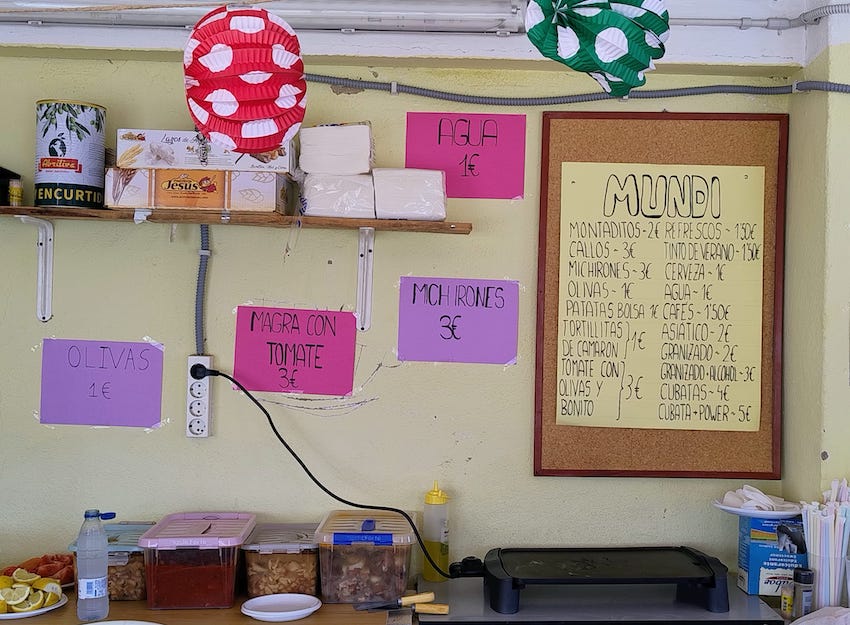 AGUA
1€
MUNDI
MONTADITOS - 2€
CALLOS - 3€
MICHIRONES - 3€
OLIVAS - 1€
PATATAS BOLSA 1€
TORTILLITAS
DE CAMARON
1€
TOMATE CON
OLIVAS Y
BONITO
3€
REFRESCOS - 1'50€
TINTO DE VERANO - 1'50€
CERVEZA - 1€
AGUA - 1€
CAFES - 1'50€
ASIÁTICO - 2€
GRANIZADO - 2€
GRANIZADO+ALCOHOL - 3€
CUBATAS - 4€
CUBATA + POWER - 5€
MICHIRONES
3€
MAGRA CON
TOMATE
3€
OLIVAS
1€
ENCURTID
Jesús